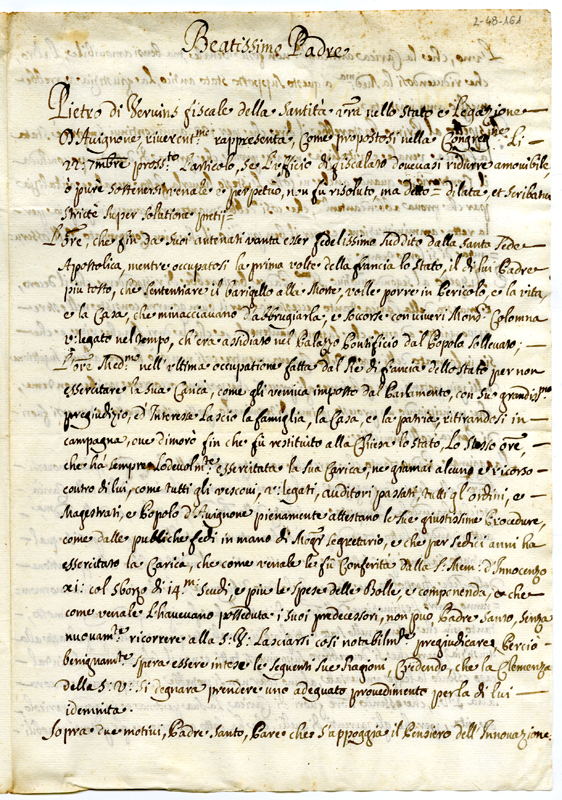 2-48-161
Beatissimo Padre
Pietro di Vervins fiscale della Santità vra nello Stato e Legazione
d'Avignone, riverentme rappresenta, Come propostosi nella Congregne li
27: 7mbre prossto l'articolo, se l'uffizio di fiscalato dovevasi ridurre amovibile,
ò pure sostenersi venale e perpetuo, non fu risoluto, ma detto = dilata et scribatur
strictè super solutione pretij =
L'Ore, che fin da suoi antenati vanta esser fedelissimo suddito dalla Santa Sede
Apostolica, mentre occupatosi la prima volta della francia lo Stato, il di lui Padre
più tosto, che sententiare il barigello alla Morte, volle porre in pericolo, e la vita,
e la Casa, che minacciavano l'abbrugiarla, e soccorse con viveri Monsr Colomna
v: legato nel tempo, ch'era assediato nel Palazzo Pontificio dal Popolo sollevato;
L'ore Medmo nell'ultima occupatione fatta dal Rè di francia dello Stato per non
essercitare la sua Carica, come gli veniva imposto dal Parlamento, con suo grandissmo
pregiudizio, ed Interesse Lasciò la famiglia, la Casa, e la patria, ritirandosi in
campagna, ove dimorò fin che fù restituito alla Chiesa lo Stato, Lo stesso Ore,
che hà sempre lodevolmte essercitata la sua Carica, ne giamai alcuno è ricorso
contro di lui, come tutti gli vescovi, v: legati, auditori passati, tutti gl'ordini, e
Magistrati, e Popolo d'Avignone pienamente attestano le sue giustissime Procedure,
come dalle publiche fedi in mano di Mogr Segretario, e che per sedici anni ha
essercitato la Carica, che come venale le fù Conferita dalla S: Mem: d'Innocenzo
xi: col sborso di 14m Scudi, e più le spese delle Bolle, e componenda, e che
come venale l'havevano posseduta i suoi predecessori, non può, Padre Santo, senza
nuovamte ricorrere alla S: V: Lasciarsi così notabilmte pregiudicare, Perciò
benignamte spera essere intese le seguenti sue Ragioni, Credendo, che la Clemenza
della S: V: si degnarà prendere uno adeguato provedimento per la di lui
idemnità.
Sopra due motivi, Padre Santo, Pare che s'appoggia il Pensiero dell'Innovazione,